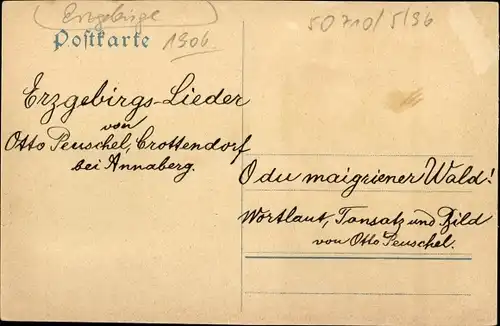 Erzgebirge
50710/5/96
Postkarte
1906
Erzgebirgs-Lieder
von
Otto Peuschel, Crottendorf
bei Annaberg.
O du maigriener Wald!
Wortlaut, Tonsatz und Bild
von Otto Peuschel.